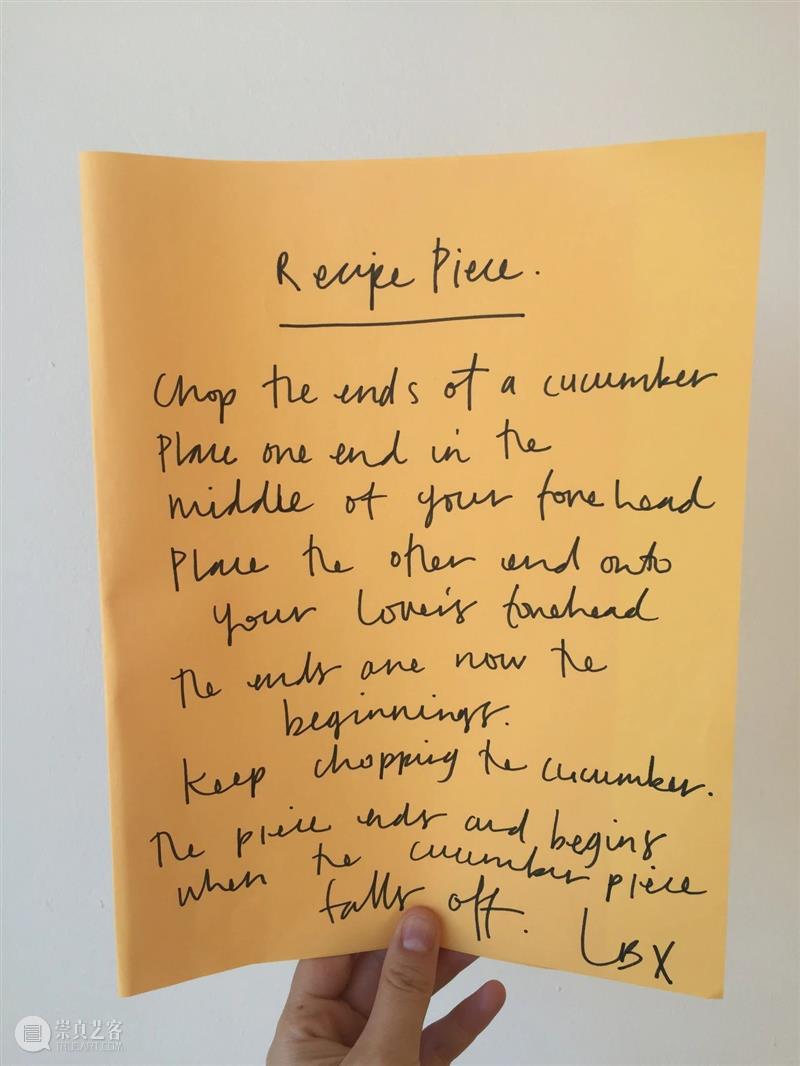 Recipe Piece.
Chop the ends of a cucumber
Place one end in the
middle of your forehead
Place the other end onto
your lover's forehead
the ends are now the
beginnings.
Keep chopping the cucumber.
The piece ends and begins
when the cucumber piece
falls off.
LBX
崇真艺客
TRUEART.COM